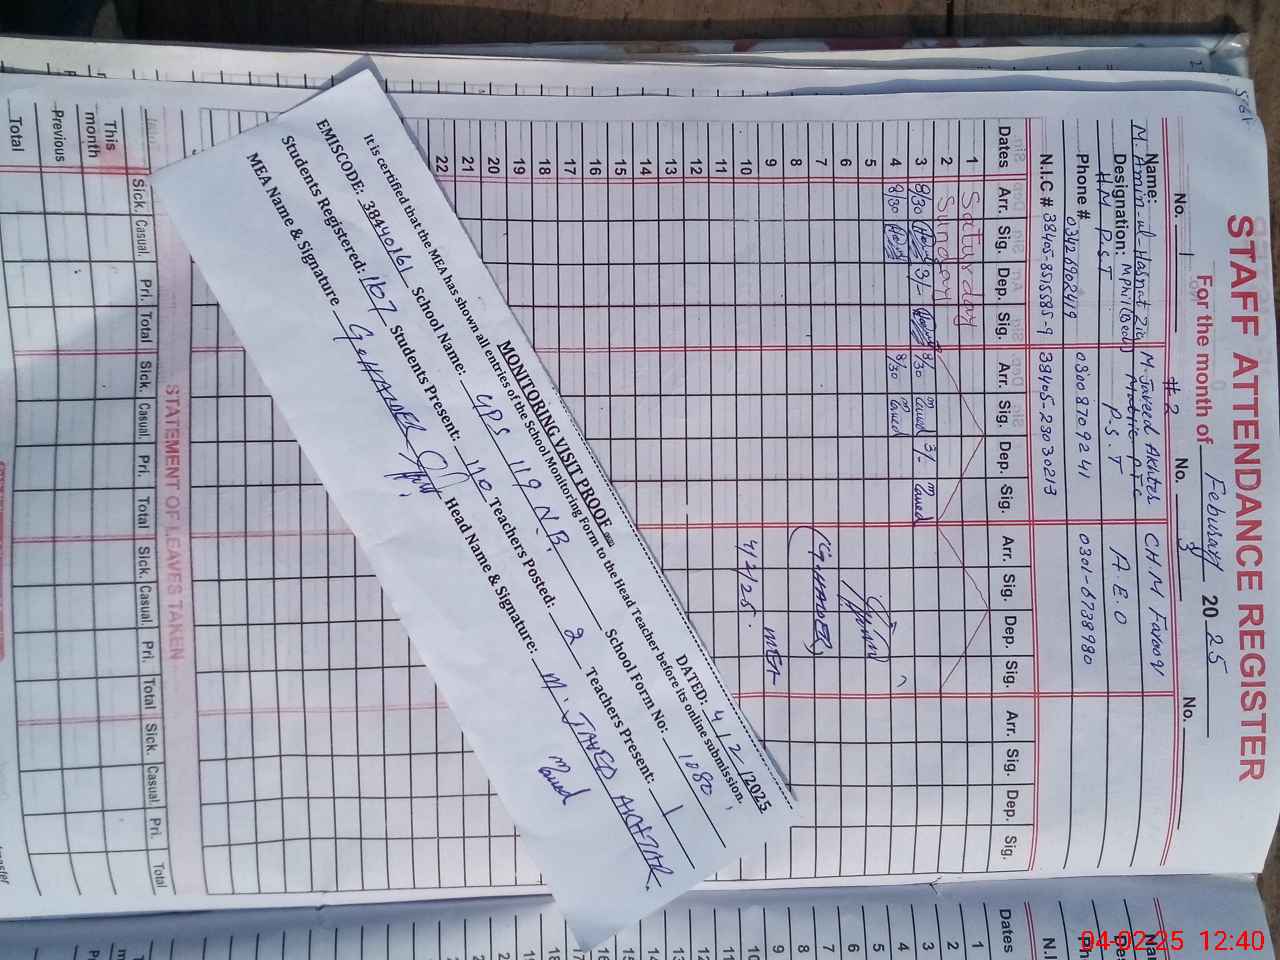 STAFF ATTENDANCE REGISTER
For the month of Feburary 20 25
No. 1 # 2 No. 3 No.
Name: M. Amin-ul-Hasnat Zia M. Javeed Akhter CH M Farooq
Designation: Mphil (Bed) Matric PTC
H.M P.S.T P.S.T A.E.O
Phone # 03426902419 03008709241 0301-6738980
N.I.C # 38405-8515585-9 38405-23030213
Dates Arr. Sig. Dep. Sig. Arr. Sig. Dep. Sig. Arr. Sig. Dep. Sig. Arr. Sig. Dep. Sig.
1 Saturday
2 Sunday
3 8/30 3/- 8/30 3/-
4 8/30 8/30
5
6
7
8 (G. HAIDER)
9 MEA
10 4/2/25.
11
12
13
14
15
16
17
18
19
20
21
22
MONITORING VISIT PROOF
DATED: 4/2/2025
It is certified that the MEA has shown all entries of the School Monitoring Form to the Head Teacher before its online submission.
EMISCODE: 38440161 School Name: GPS 119 N.B. School Form No: 1080
Students Registered: 167 Students Present: 110 Teachers Posted: 2 Teachers Present: 1
MEA Name & Signature G. HAIDER Head Name & Signature: M. JAVED AKHTAR.
STATEMENT OF LEAVES TAKEN
Sick. Casual. Pri. Total Sick. Casual. Pri. Total Sick. Casual. Pri. Total Sick. Casual. Pri. Total
This month
Previous
Total
Dates
1
2
3
4
5
6
7
8
9
10
11
12
13
14
15
16
17
18
04-02-25 12:40